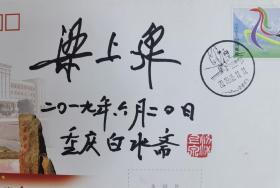 梁上泉
二〇一九年六月二〇日
重庆白水斋